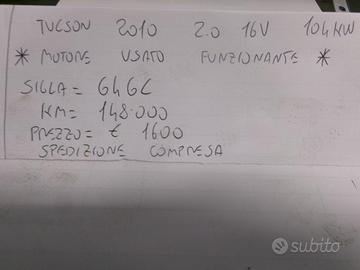 TUCSON 2010 2.0 16V 104KW
* MOTORE USATO FUNZIONANTE *
SIGLA = G4GC
KM = 148.000
PREZZO = € 1600
SPEDIZIONE COMPRESA
subito